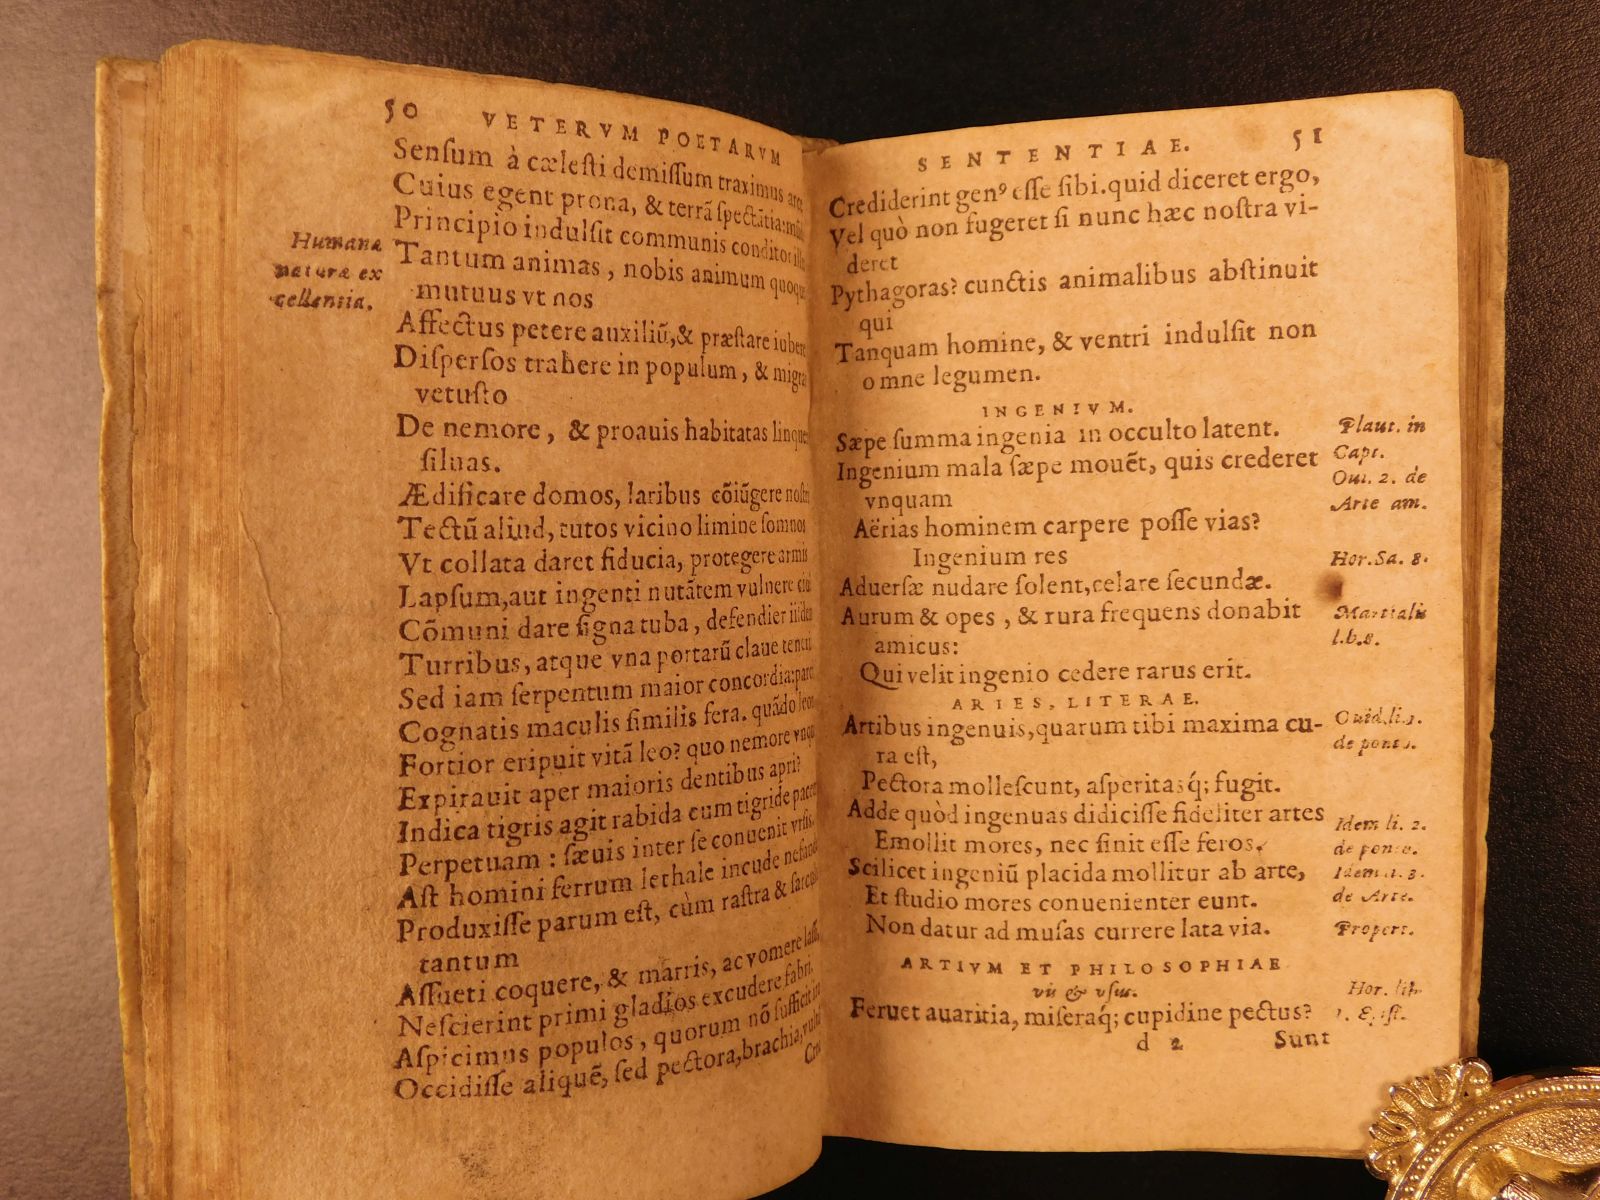 50 VETERVM POETARVM
Senſum à cæleſti demiſſum traximus arce
Cuius egent prona, & terrã ſpectãtia: mũdi
Principio indulſit communis conditor illis
Humana
Tantum animas, nobis animum quoque
naturæ ex
mutuus vt nos
cellentia.
Affectus petere auxiliũ, & præſtare iubere
Diſperſos trahere in populum, & migra
vetuſto
De nemore, & proauis habitatas linque
ſiluas.
Ædificare domos, laribus cõiũgere noſtri
Tectũ aliud, tutos vicino limine ſomnos
Vt collata daret fiducia, protegere armis
Lapſum, aut ingenti nutãtem vulnere
Cõmuni dare ſigna tuba, defendier iiſdem
Turribus, atque vna portarũ claue teneri
Sed iam ſerpentum maior concordia: parc
Cognatis maculis ſimilis fera. quãdo leoni
Fortior eripuit vitã leo? quo nemore vnqu
Expirauit aper maioris dentibus apri?
Indica tigris agit rabida cum tigride pacem
Perpetuam: ſæuis inter ſe conuenit vrſis.
Aſt homini ferrum lethale incude nefanda
Produxiſſe parum eſt, cùm raſtra & ſarcula
tantum
Aſſueti coquere, & marris, ac vomere laſſi,
Neſcierint primi gladios excudere fabri.
Aſpicimus populos, quorum nõ ſufficit iræ
Occidiſſe aliquẽ, ſed pectora, brachia, vultũ
Cre
SENTENTIAE. 51
Crediderint genꝰ eſſe ſibi. quid diceret ergo,
Vel quò non fugeret ſi nunc hæc noſtra vi-
deret
Pythagoras? cunctis animalibus abſtinuit
qui
Tanquam homine, & ventri indulſit non
omne legumen.
INGENIVM.
Sæpe ſumma ingenia in occulto latent. Plaut. in
Capt.
Ingenium mala ſæpe mouẽt, quis crederet
Oui. 2. de
vnquam
Arte am.
Aërias hominem carpere poſſe vias?
Ingenium res Hor. Sa. 8.
Aduerſæ nudare ſolent, celare ſecundæ.
Aurum & opes, & rura frequens donabit Martialis
l.b.8.
amicus:
Qui velit ingenio cedere rarus erit.
ARTES, LITERAE.
Artibus ingenuis, quarum tibi maxima cu- Ouid. li. 1.
de pont.
ra eſt,
Pectora molleſcunt, aſperitasq́; fugit.
Adde quòd ingenuas didiciſſe fideliter artes Idem li. 2.
Emollit mores, nec ſinit eſſe feros. de ponte.
Scilicet ingeniũ placida mollitur ab arte, Idem li. 3.
Et ſtudio mores conuenienter eunt. de Arte.
Non datur ad muſas currere lata via. Propert.
ARTIVM ET PHILOSOPHIAE
vis & vſus. Hor. lib.
Feruet auaritia, miſeraq́; cupidine pectus? 1. Epiſt.
d 2 Sunt